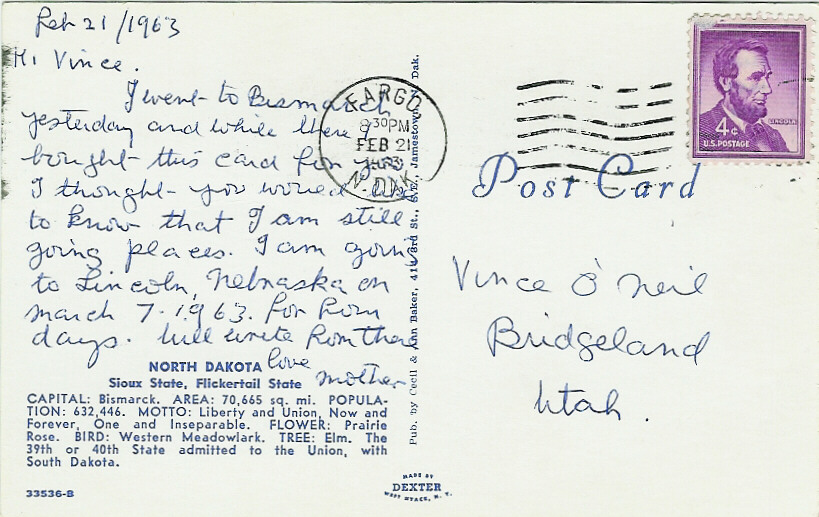 Feb 21/1963
Hi Vince.
I went to Bismarck
yesterday and while there I
bought this card for you
I thought you would like
to know that I am still
going places. I am going
to Lincoln, Nebraska on
march 7-1963. for
days. Will write from there
love
mother
NORTH DAKOTA
Sioux State, Flickertail State
CAPITAL: Bismarck. AREA: 70,665 sq. mi. POPULA-
TION: 632,446. MOTTO: Liberty and Union, Now and
Forever, One and Inseparable. FLOWER: Prairie
Rose. BIRD: Western Meadowlark. TREE: Elm. The
39th or 40th State admitted to the Union, with
South Dakota.
33536-B
Pub. by Cecil & Ann Baker, 414 3rd St., S.E., Jamestown, N. Dak.
MADE BY
DEXTER
WEST NYACK, N. Y.
FARGO
8:30PM
FEB 21
1963
N. DAK.
LINCOLN
4¢
U.S. POSTAGE
Post Card
Vince O'Neil
Bridgeland
Utah.